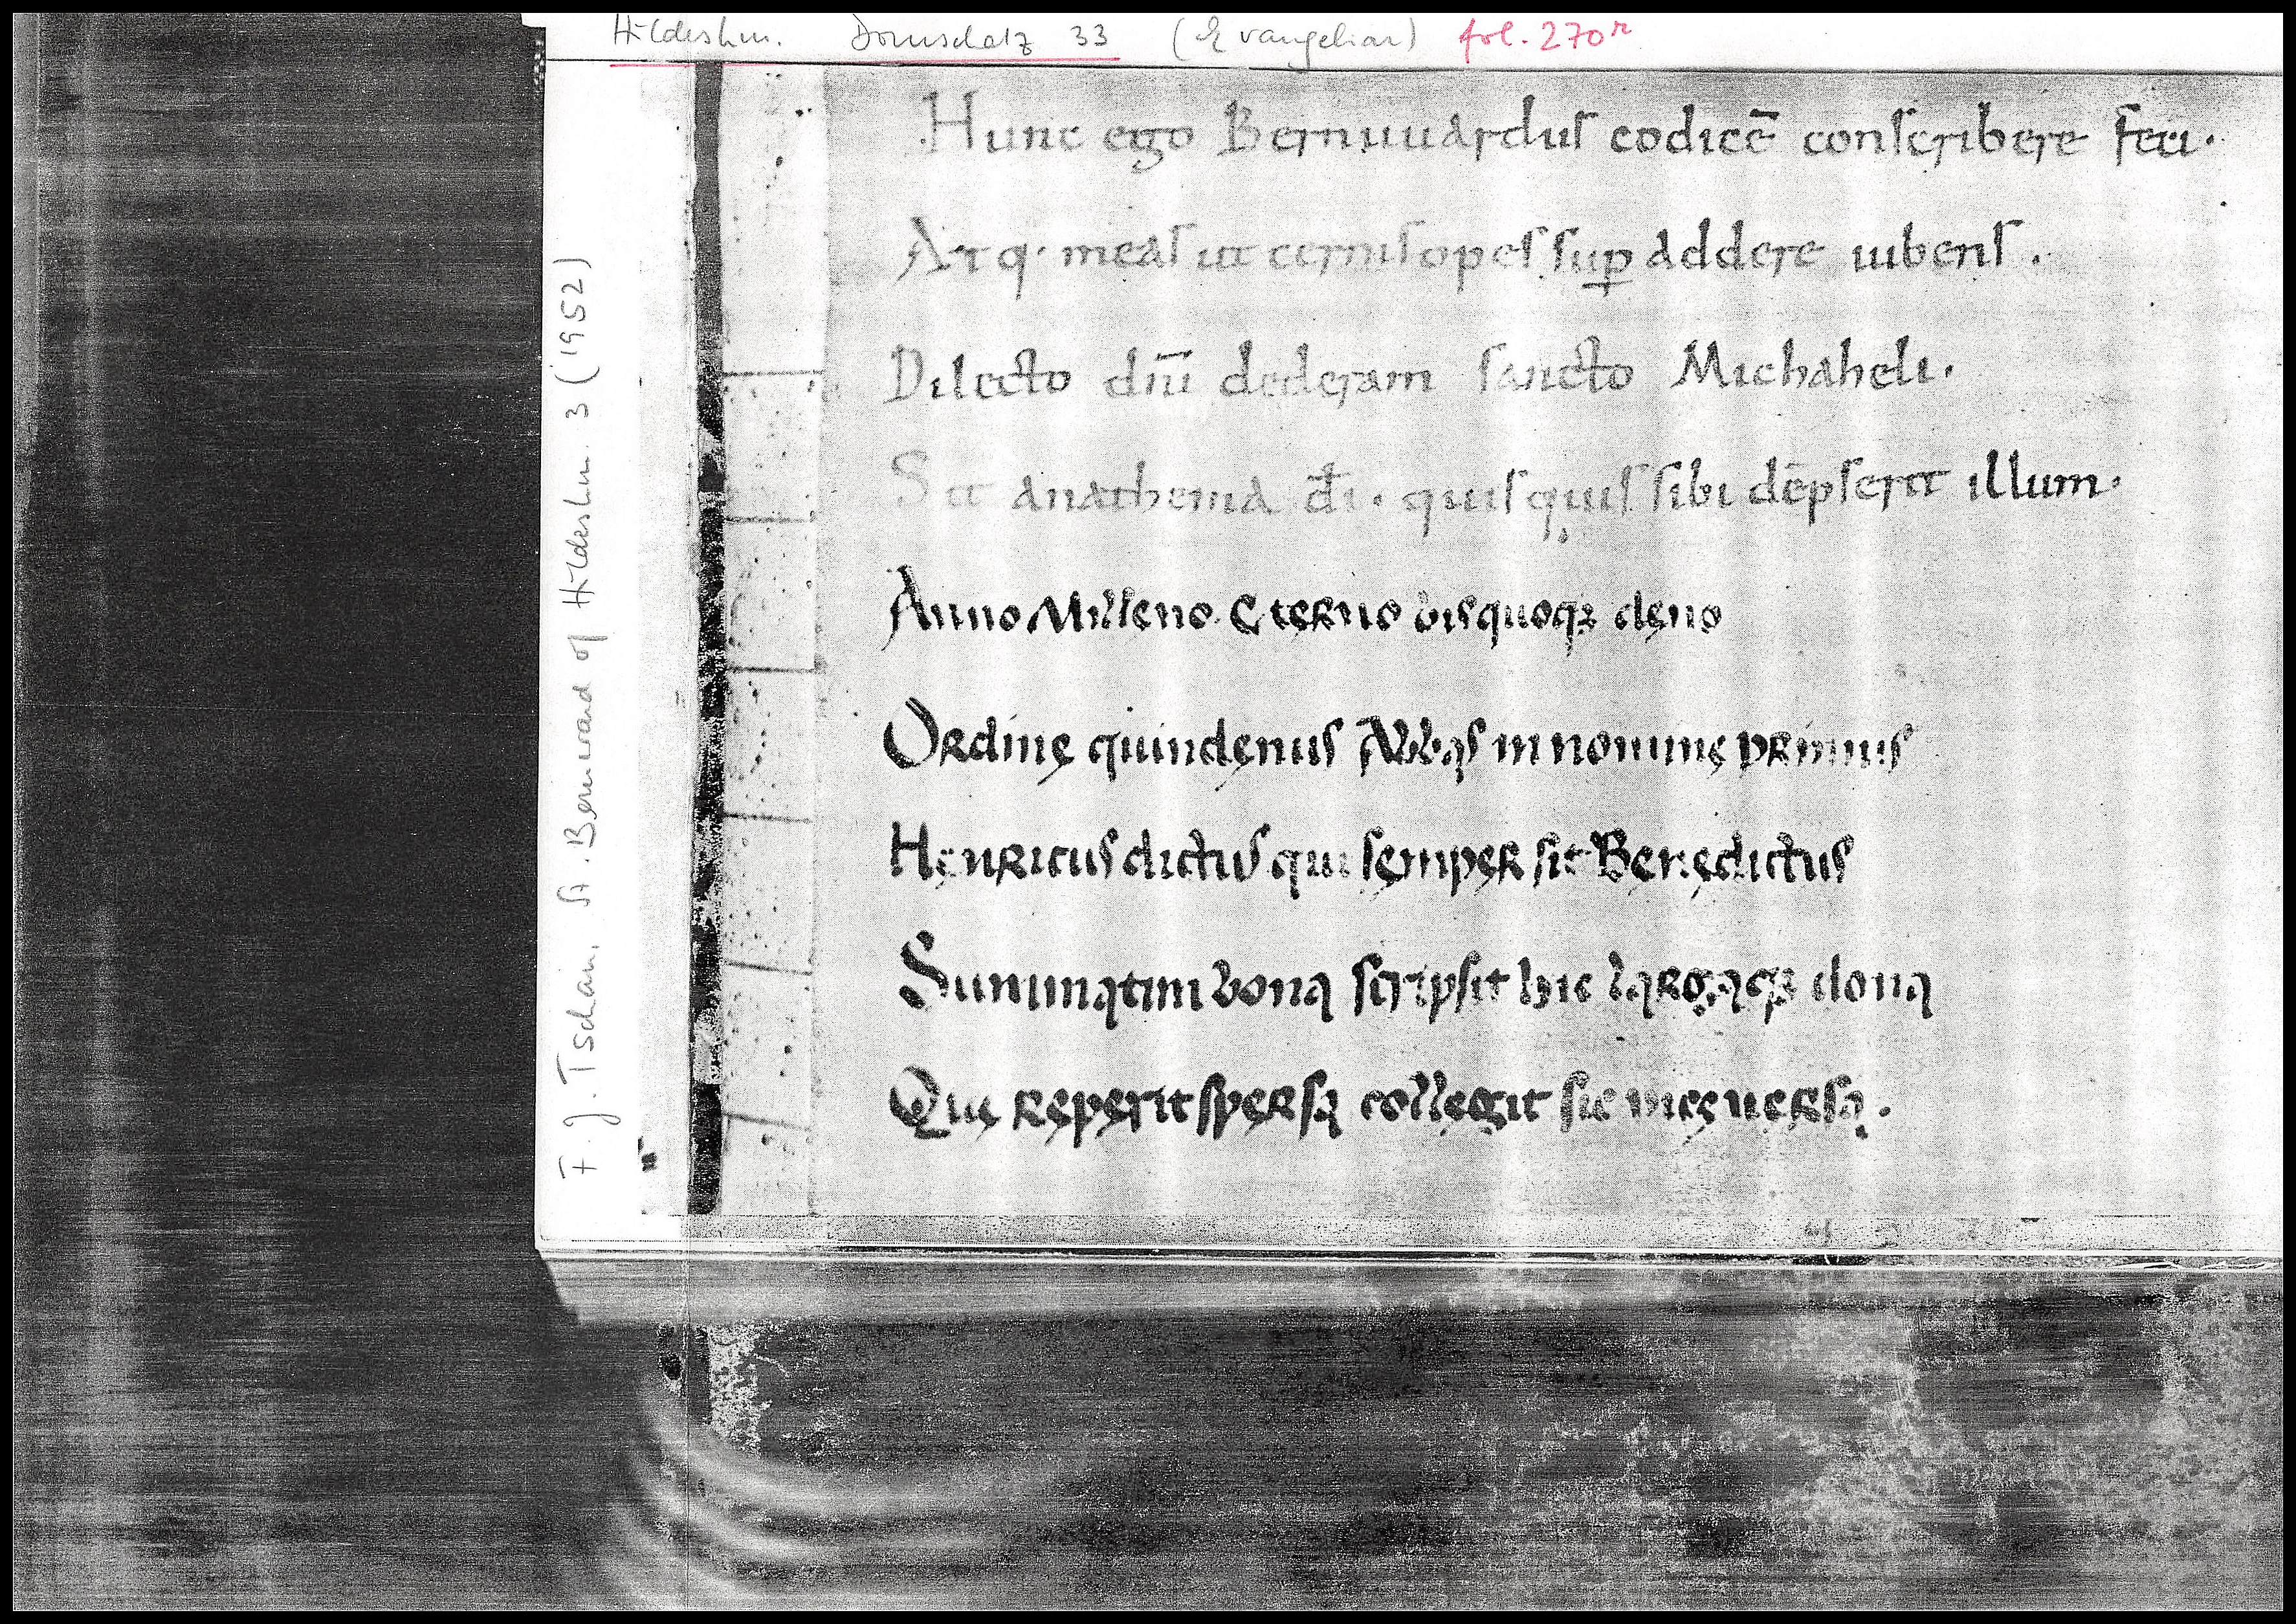 Hildeshm. Domschatz 33 (Evangeliar) fol. 270r
F. J. Tschan. St. Bernward of Hildeshm. 3 (1952)
Hunc ego Bernuuarduſ codicē conſcribere feci.
Atq· meaſ ut cerniſ opeſ ſuꝑ addere iubenſ.
Dilecto dn̄u dederam ſancto Michaheli.
Sit anathema d̄i· quiſquiſ ſibi dēpſerit illum.
Anno Milleno C terno biſquoqꝫ deno
Ordine quindenuſ Abbaſ in nomine primuſ
Henricuſ dictuſ qui ſemper ſit Benedictuſ
Summatim bona ſcripſit hic largaqꝫ dona
Que reperit ſperſa collegit ſic mee uerſa.